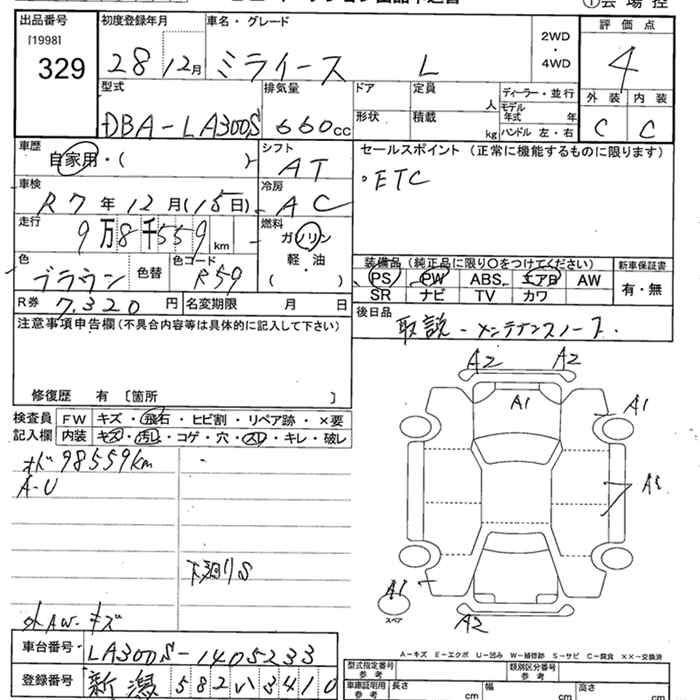 出品番号 初度登録年月 車名・グレード ①会場控
[1998]
329
28 12月 ミライース L
2WD
・
4WD
評価点
4
外装 内装
C C
型式 排気量 ドア 定員 人 ディーラー・並行
DBA-LA300S 660cc
形状 積載 kg モデル年式 年
ハンドル 左・右
車歴 シフト セールスポイント (正常に機能するものに限ります)
自家用・( ) AT ・ETC
車検 冷房
R7年12月(15日) AC
走行 燃料
9万8千559km ガソリン
軽・油
( )
色 色替 色コード
ブラウン R59
装備品 (純正品に限り○をつけてください) 新車保証書
PS PW ABS エアB AW 有・無
SR ナビ TV カワ
R券 7,320円 名変期限 月 日 後日品
取説-メンテナンスノート.
注意事項申告欄(不具合内容等は具体的に記入して下さい)
修復歴 有 [箇所 ]
検査員 FW キズ・飛石・ヒビ割・リペア跡・×要
記入欄 内装 キズ・汚レ・コゲ・穴・スレ・キレ・破レ
オド98559km
A-U
下廻りS
外AW・キズ
A2 A2
A1 A1
A1
スペア
A2
車台番号 LA300S-1405233
登録番号 新潟 582 い 3410
A-キズ E-エクボ U-凹み W-補修跡 S-サビ C-腐食 ××-交換済
型式指定番号 参考 類別区分番号 参考
車庫証明用 参考 長さ cm 幅 cm 高さ cm